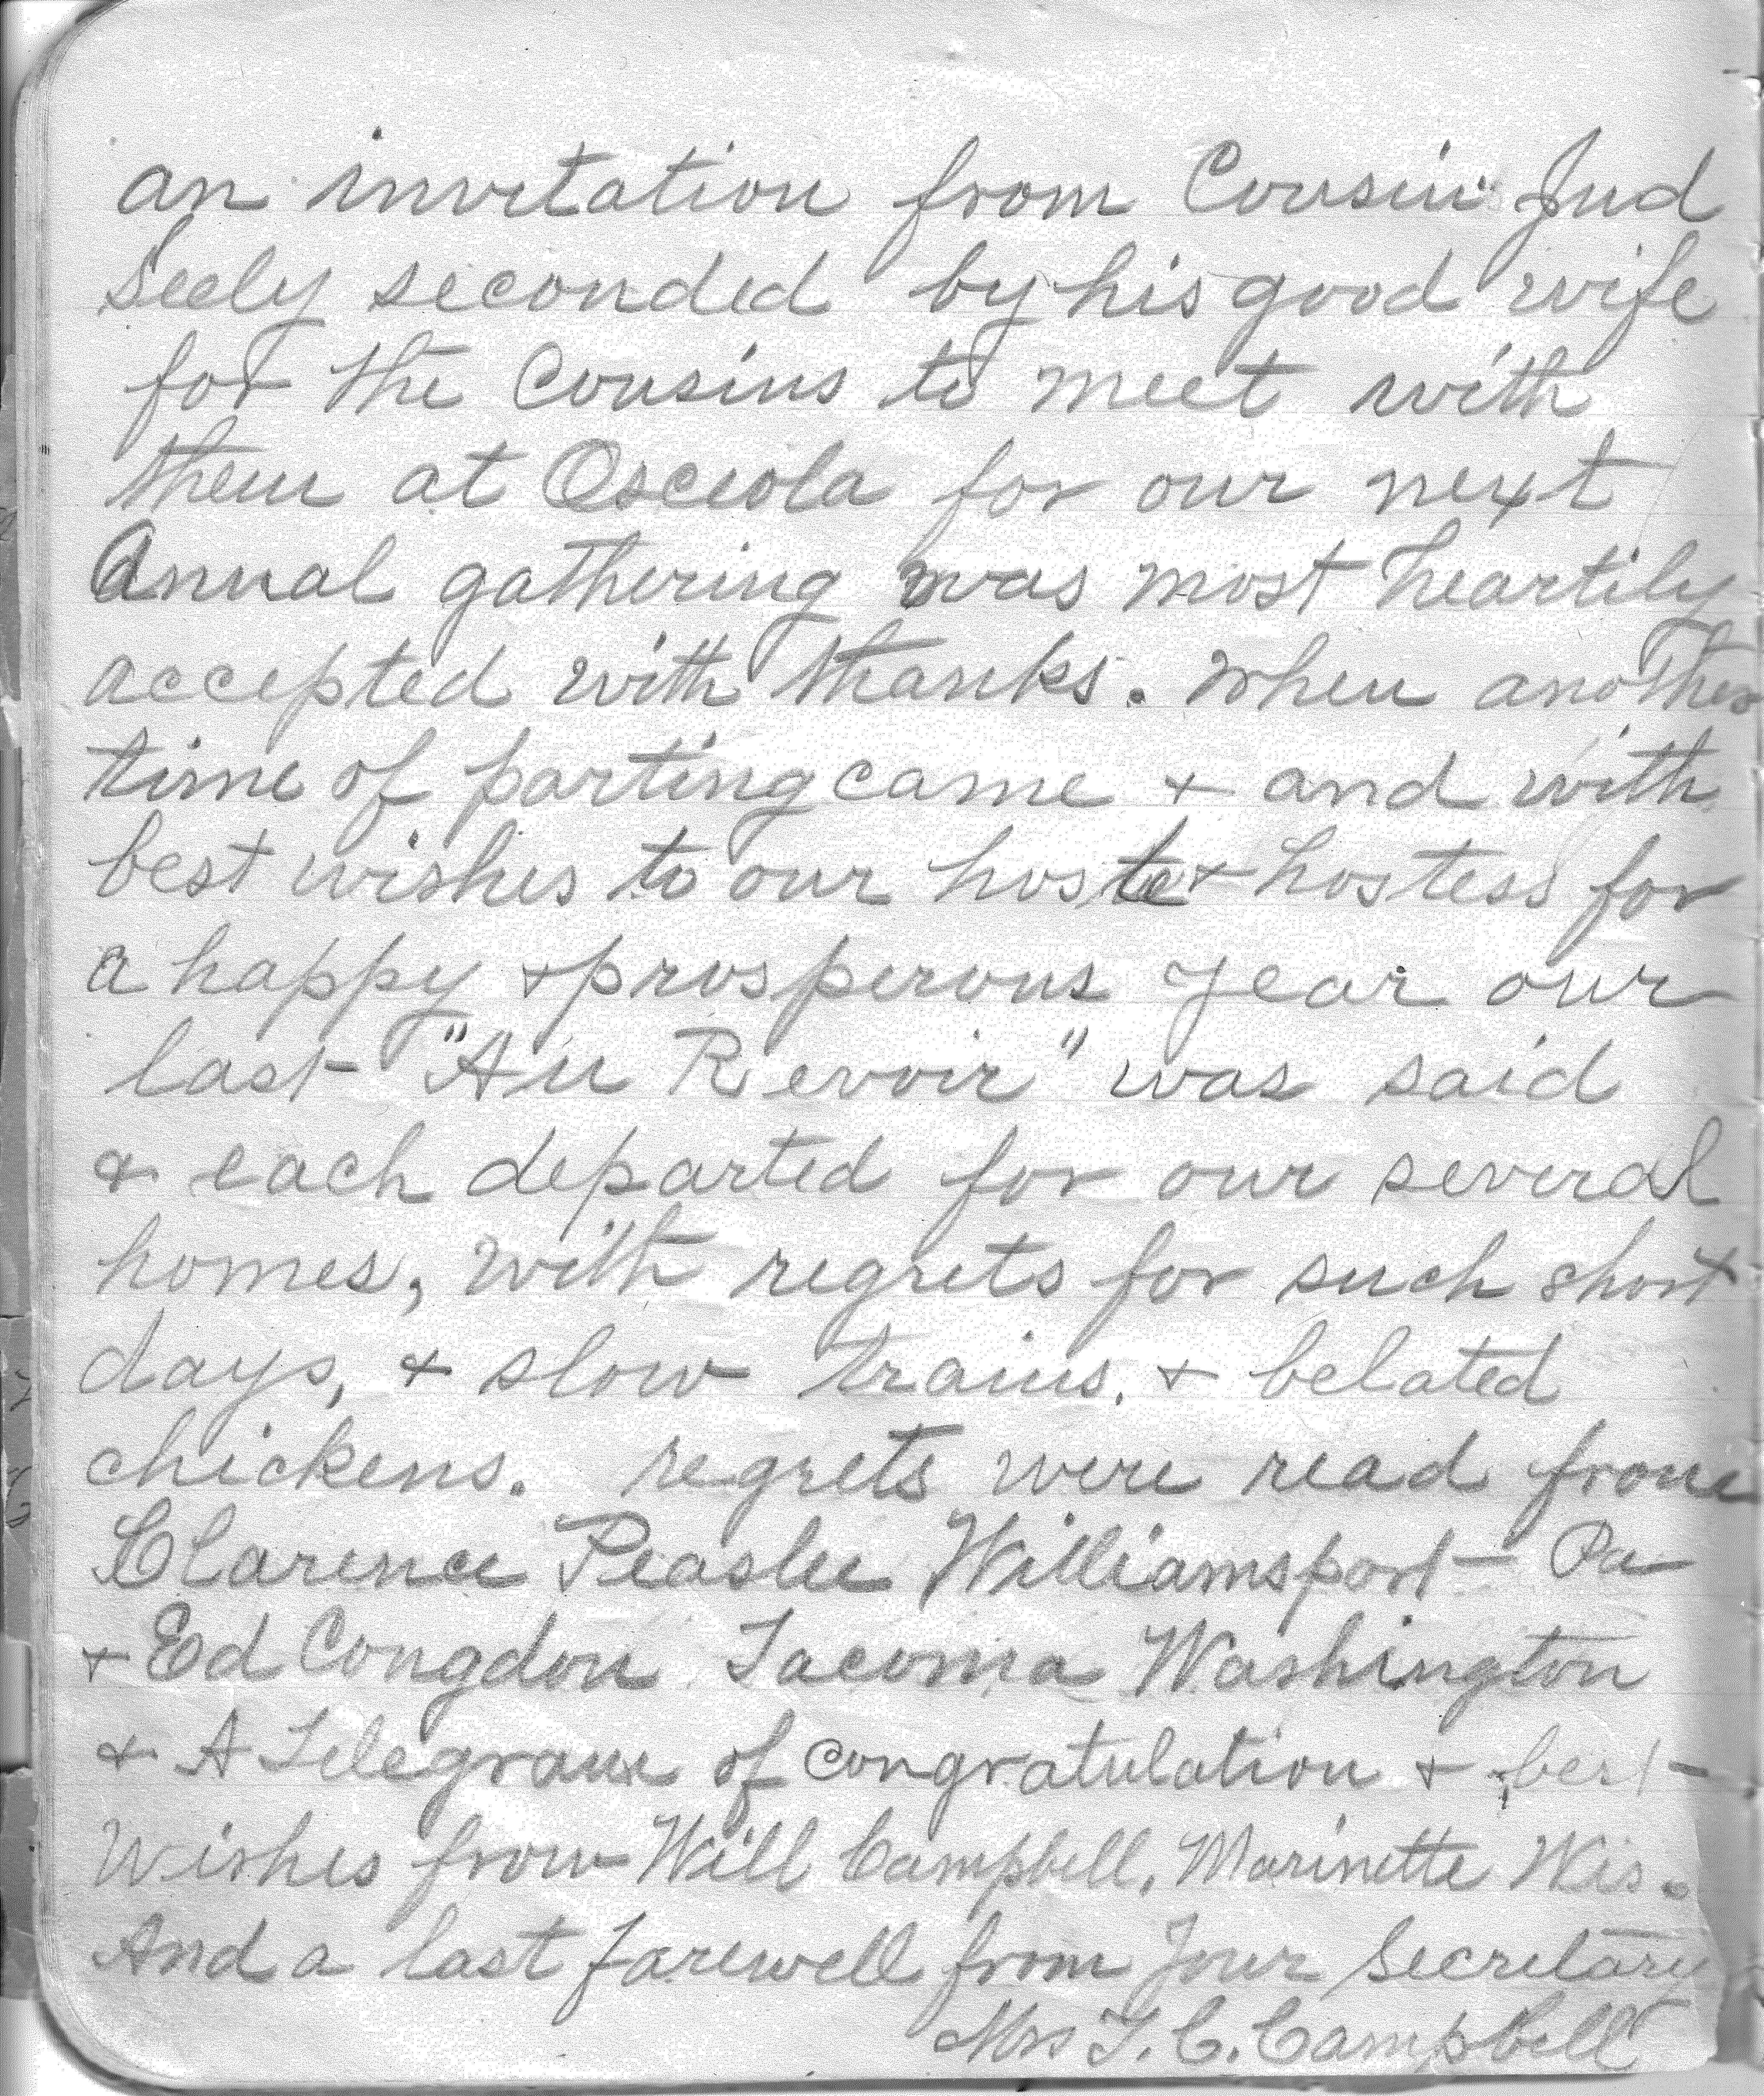 an invitation from Cousin Jud
Seely seconded by his good wife
for the Cousins to meet with
them at Osceola for our next
Annual gathering was most heartily
accepted with thanks. When another
time of parting came + and with
best wishes to our hoste + hostess for
a happy + prosperous year our
last "Au Revoir" was said
& each departed for our several
homes, with regrets for such short
days, + slow trains, + belated
chickens. regrets were read from
Clarence Peaslee Williamsport Pa
+ Ed Congdon Tacoma Washington
& A Telegram of congratulation + best
Wishes from Will Campbell, Marinette Wis.
And a last farewell from Your Secretary
Mrs T. C. Campbell